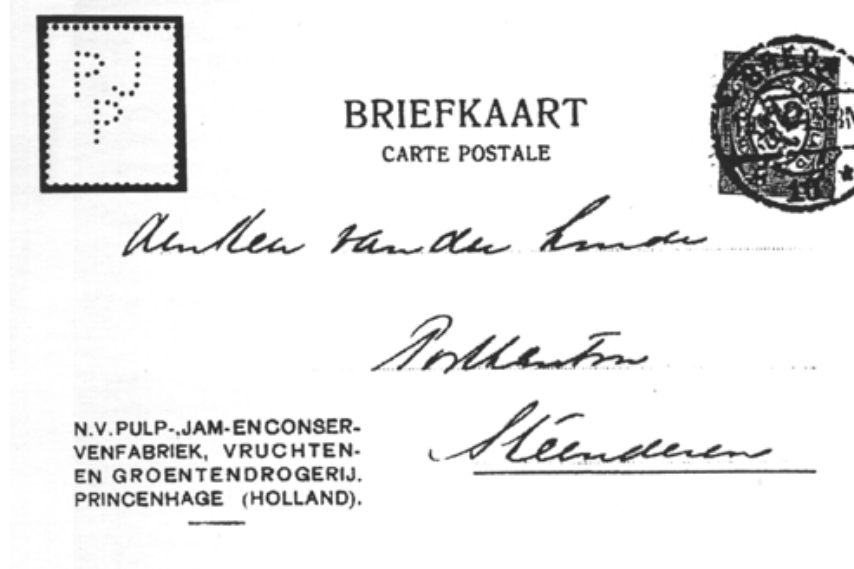 PJ
P
BRIEFKAART
CARTE POSTALE
BREDA
van der Linde
Postkantoor
Steenderen
N.V. PULP-, JAM- EN CONSER-
VENFABRIEK, VRUCHTEN-
EN GROENTENDROGERIJ.
PRINCENHAGE (HOLLAND).